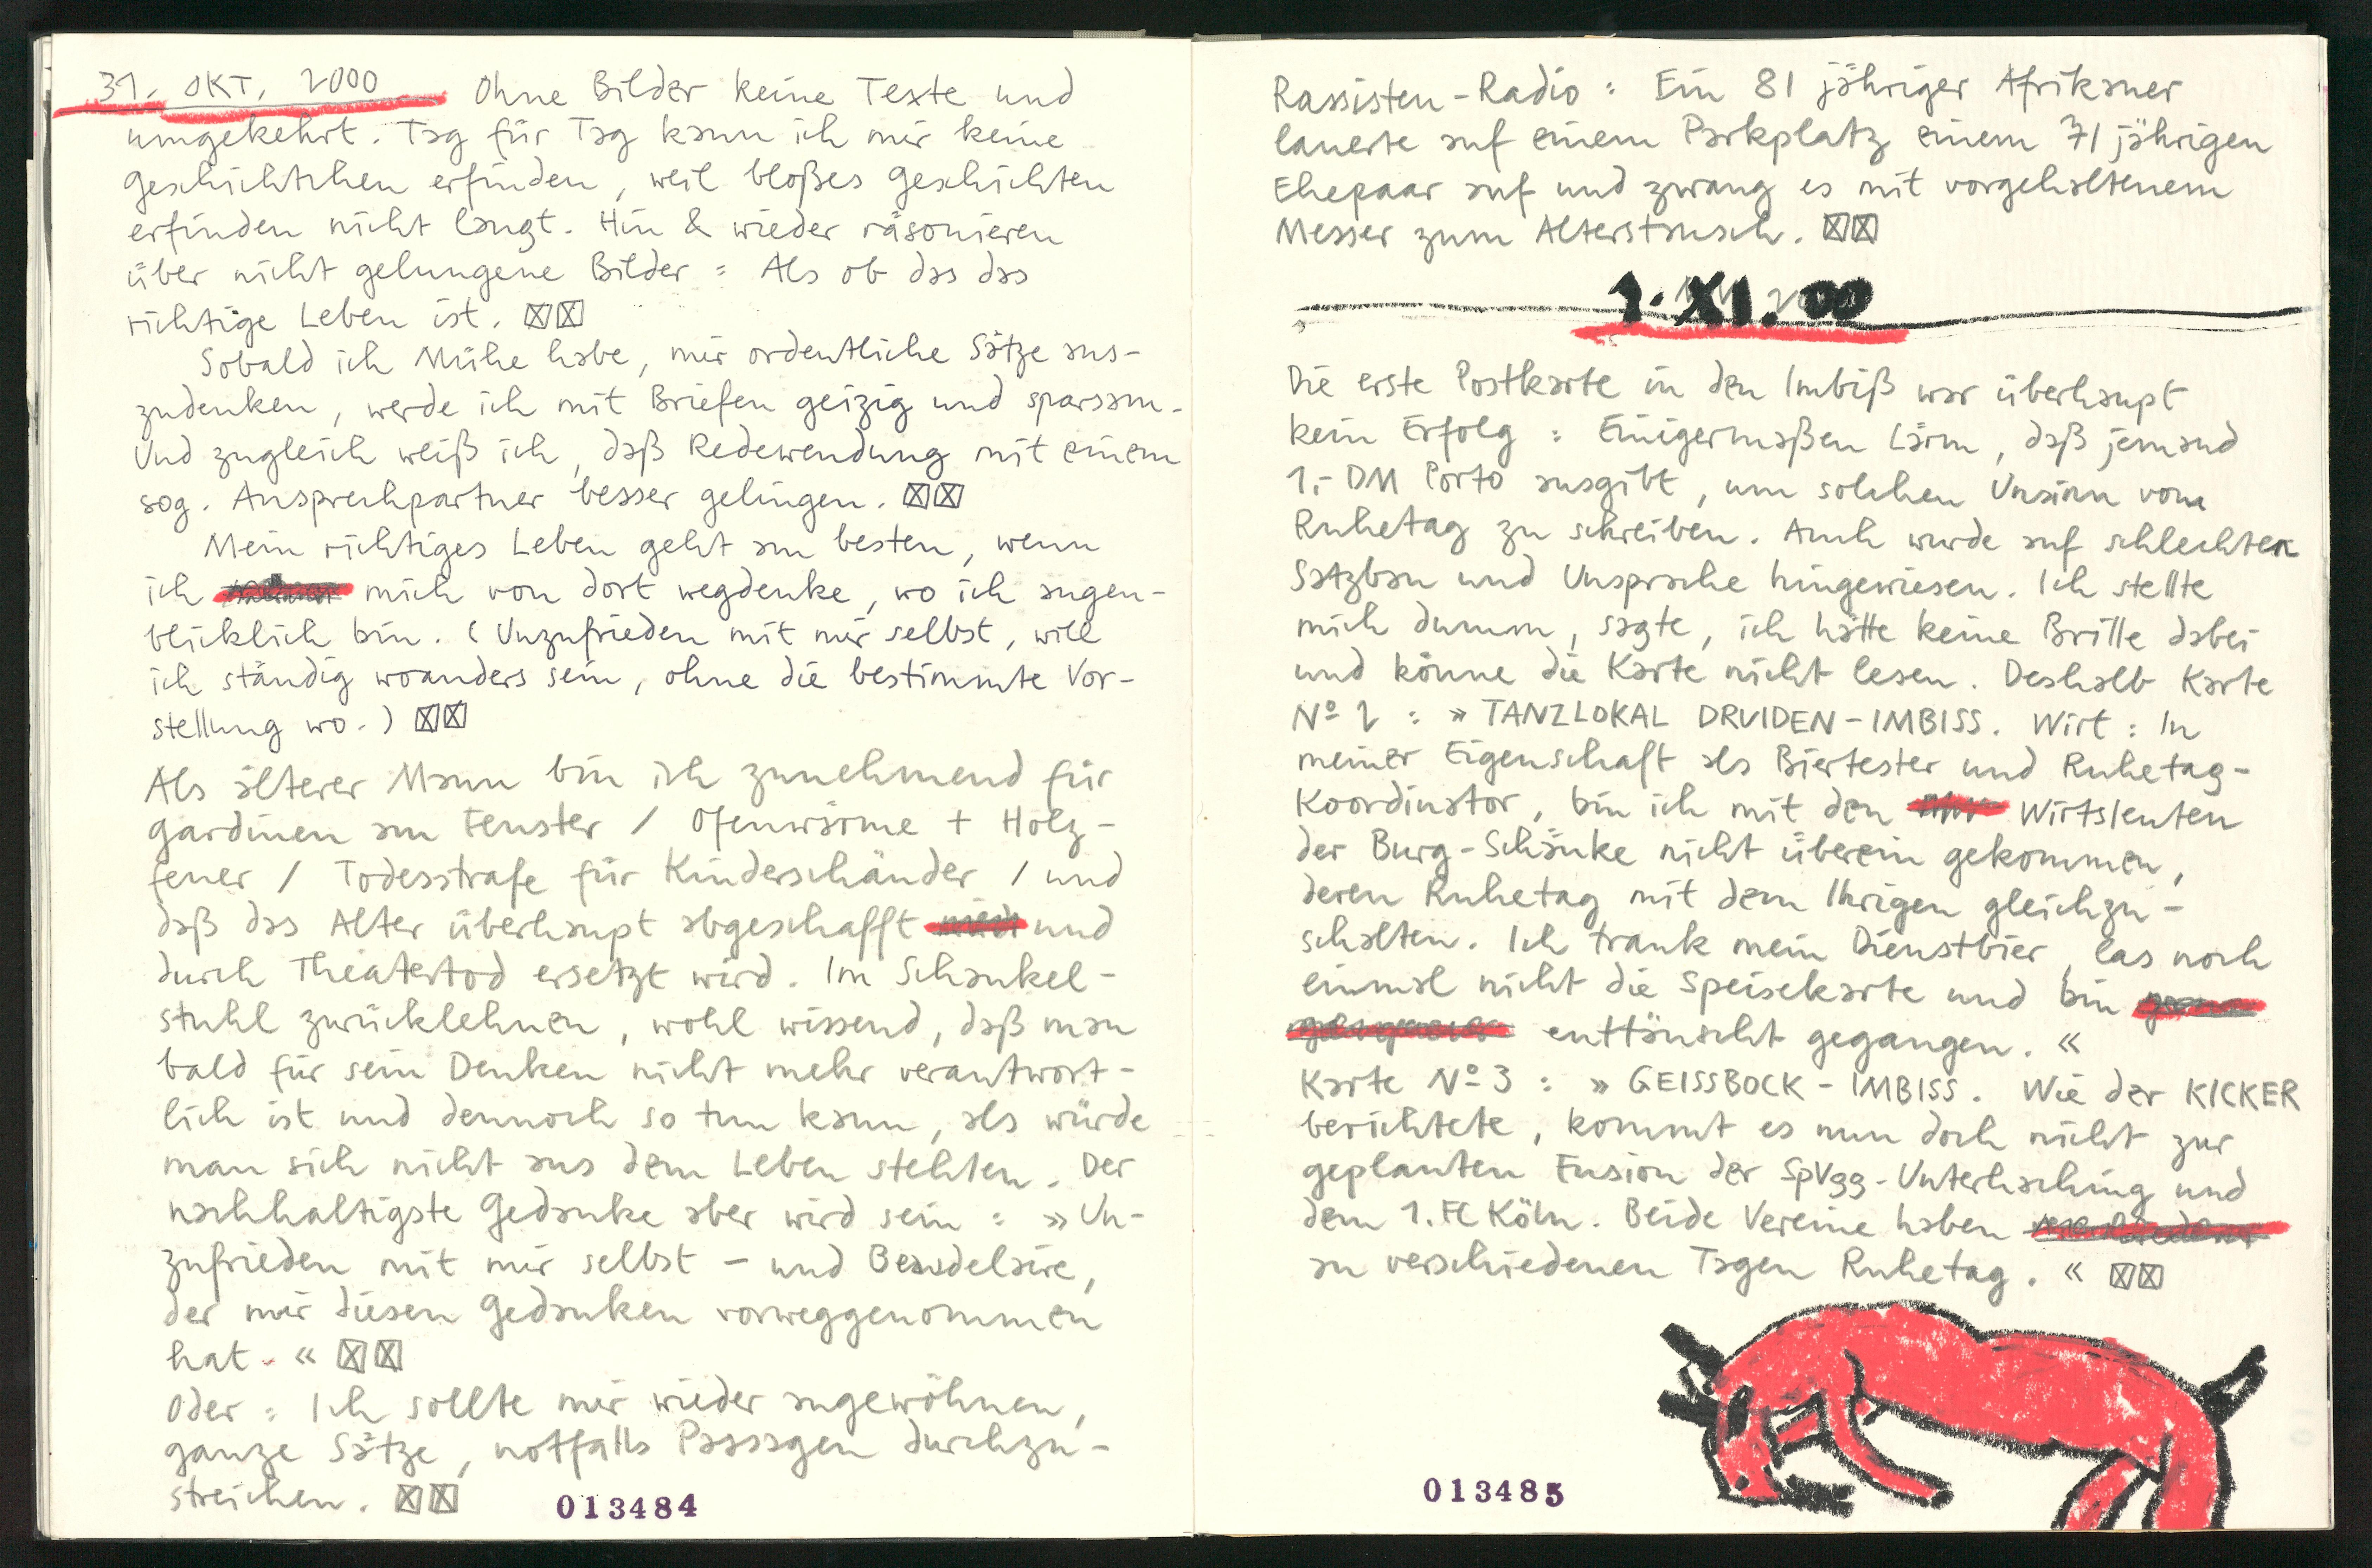 31. OKT. 2000 Ohne Bilder keine Texte und
umgekehrt. Tag für Tag kann ich mir keine
Geschichtchen erfinden, weil bloßes Geschichten
erfinden nicht langt. Hin & wieder räsonieren
über nicht gelungene Bilder: Als ob das das
richtige Leben ist. ☒☒
Sobald ich Mühe habe, mir ordentliche Sätze aus-
zudenken, werde ich mit Briefen geizig und sparsam.
Und zugleich weiß ich, daß Redewendung mit einem
sog. Ansprechpartner besser gelingen. ☒☒
Mein richtiges Leben geht am besten, wenn
ich mich von dort wegdenke, wo ich augen-
blicklich bin. (Unzufrieden mit mir selbst, will
ich ständig woanders sein, ohne die bestimmte Vor-
stellung wo.) ☒☒
Als älterer Mann bin ich zunehmend für
Gardinen am Fenster / Ofenwärme + Holz-
feuer / Todesstrafe für Kinderschänder / und
daß das Alter überhaupt abgeschafft und
durch Theatertod ersetzt wird. Im Schaukel-
stuhl zurücklehnen, wohl wissend, daß man
bald für sein Denken nicht mehr verantwort-
lich ist und dennoch so tun kann, als würde
man sich nicht aus dem Leben stehlen. Der
nachhaltigste Gedanke aber wird sein: »Un-
zufrieden mit mir selbst – und Beaudelaire,
der mir diesen Gedanken vorweggenommen
hat.« ☒☒
Oder: Ich sollte mir wieder angewöhnen,
ganze Sätze, notfalls Passagen durchzu-
streichen. ☒☒
013484
Rassisten-Radio: Ein 81 jähriger Afrikaner
lauerte auf einem Parkplatz einem 71 jährigen
Ehepaar auf und zwang es mit vorgehaltenem
Messer zum Alterstausch. ☒☒
1. XI. 00
Die erste Postkarte in den Imbiß war überhaupt
kein Erfolg: Einigermaßen Lärm, daß jemand
1,- DM Porto ausgibt, um solchen Unsinn vom
Ruhetag zu schreiben. Auch wurde auf schlechten
Satzbau und Unsprache hingewiesen. Ich stellte
mich dumm, sagte, ich hätte keine Brille dabei
und könne die Karte nicht lesen. Deshalb Karte
Nº 2: »TANZLOKAL DRUIDEN-IMBISS. Wirt: In
meiner Eigenschaft als Biertester und Ruhetag-
Koordinator, bin ich mit den Wirtsleuten
der Burg-Schänke nicht überein gekommen,
deren Ruhetag mit dem Ihrigen gleichzu-
schalten. Ich trank mein Dienstbier, las noch
einmal nicht die Speisekarte und bin
enttäuscht gegangen.«
Karte Nº 3: »GEISSBOCK-IMBISS. Wie der KICKER
berichtete, kommt es nun doch nicht zur
geplanten Fusion der SpVgg-Unterhaching und
dem 1. FC Köln. Beide Vereine haben
an verschiedenen Tagen Ruhetag.« ☒☒
013485